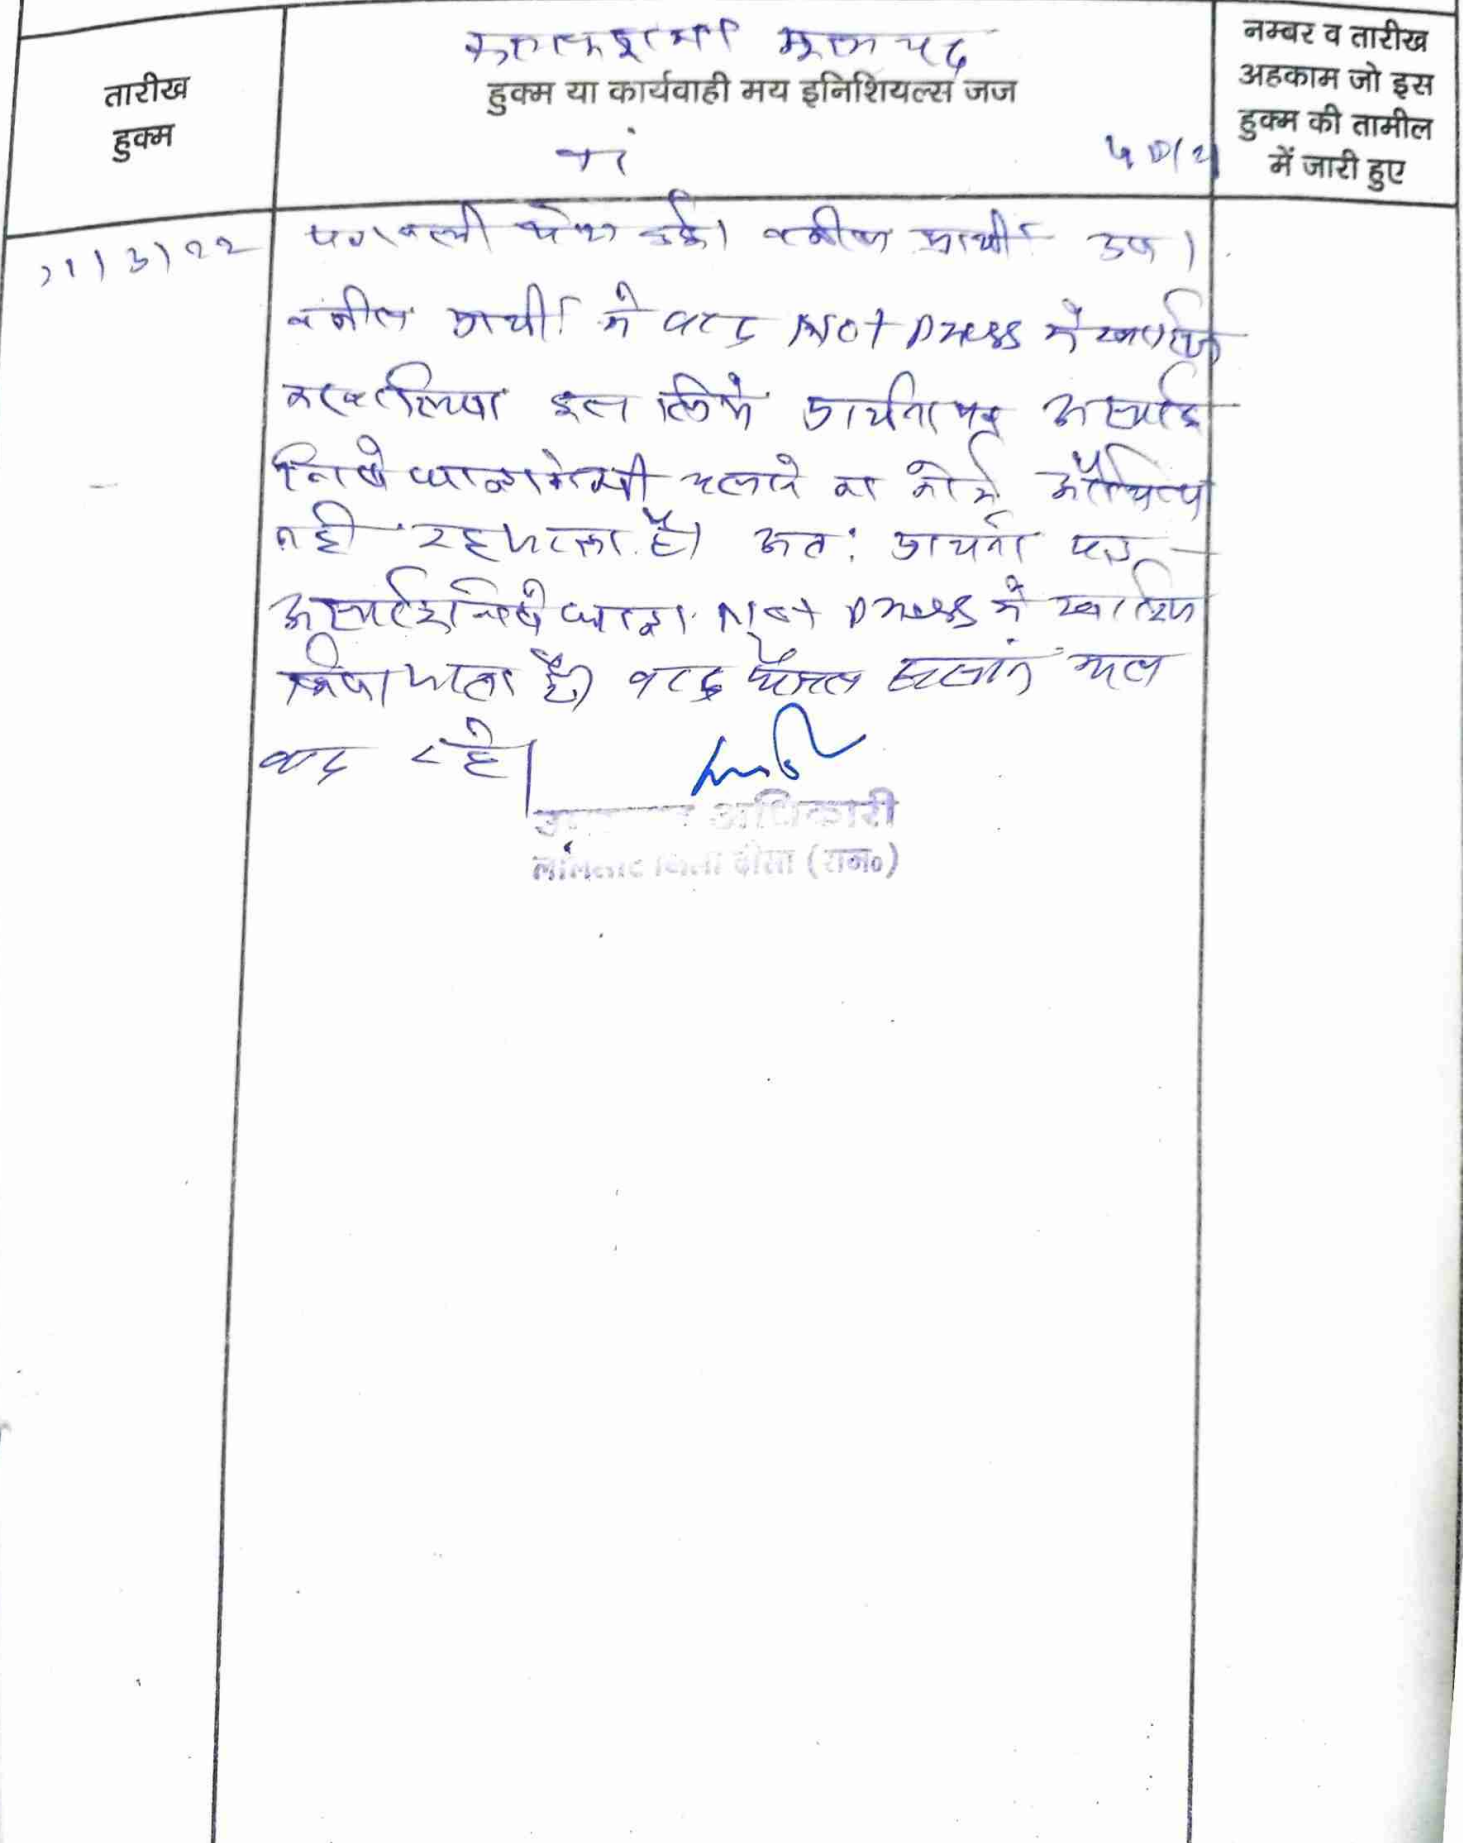 मूलचंद
तारीख
हुक्म
हुक्म या कार्यवाही मय इनिशियल्स जज
नम्बर व तारीख
अहकाम जो इस
हुक्म की तामील
में जारी हुए
नं
पत्रावली पेश हुई। वकील प्रार्थी उप।
वकील प्रार्थी ने वाद Not press में खारिज
करवा लिया इस लिये प्रार्थना पत्र अस्थाई
निषेधाज्ञा चलाने का कोई औचित्य
नही रह जाता है। अतः प्रार्थना पत्र
अस्थाई निषेधाज्ञा Not press में खारिज
किया जाता है। वाद फैसल मूल
वाद रहे।
अधिकारी
लालसोट जिला दौसा (राज०)